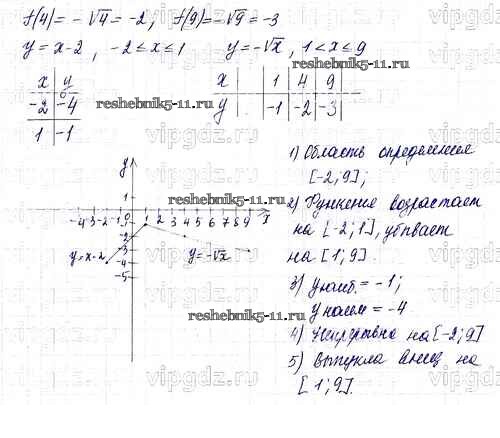 f(4) = -√4 = -2; f(9) = -√9 = -3
y = x-2, -2 ≤ x ≤ 1   y = -√x, 1 < x ≤ 9
x | y
-2 | -4
1 | -1
x | 1 | 4 | 9
y | -1 | -2 | -3
reshebnik5-11.ru
reshebnik5-11.ru
1) Область определения
[-2; 9];
2) Функция возрастает
на [-2; 1], убывает
на [1; 9].
3) y наиб. = -1;
y наим = -4
4) Непрерывна на [-2; 9]
5) Выпукла вниз на
[1; 9].
y
reshebnik5-11.ru
1
-4 -3 -2 -1 0 1 2 3 4 5 6 7 8 9 x
-1
-2
-3
-4
-5
y = x-2
y = -√x
reshebnik5-11.ru
vipgdz.ru
vipgdz.ru
vipgdz.ru
vipgdz.ru
vipgdz.ru
vipgdz.ru